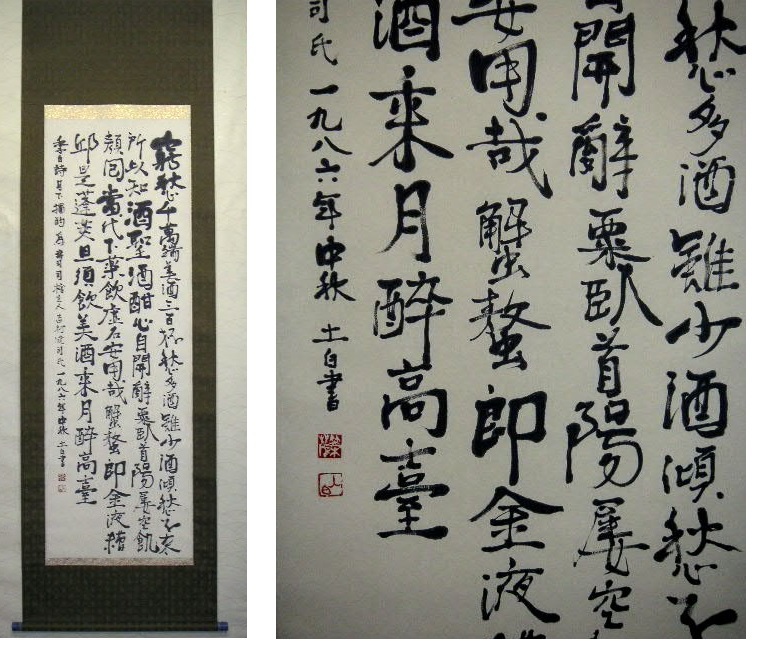 窮愁千萬端美酒三百杯愁多酒雖少酒傾愁不来
所以知酒聖酒酣心自開辭粟臥首陽屢空飢
顔回當代不樂飲虚名安用哉蟹螯即金液糟
邱是蓬莱且須飲美酒乗月醉高臺
李白詩月下獨酌 為 主人 司氏 一九八六年中秋 土白書
愁多酒雖少酒傾愁不
自開辭粟臥首陽屢空
安用哉蟹螯即金液
酒乗月醉高臺
司氏 一九八六年中秋 土白書